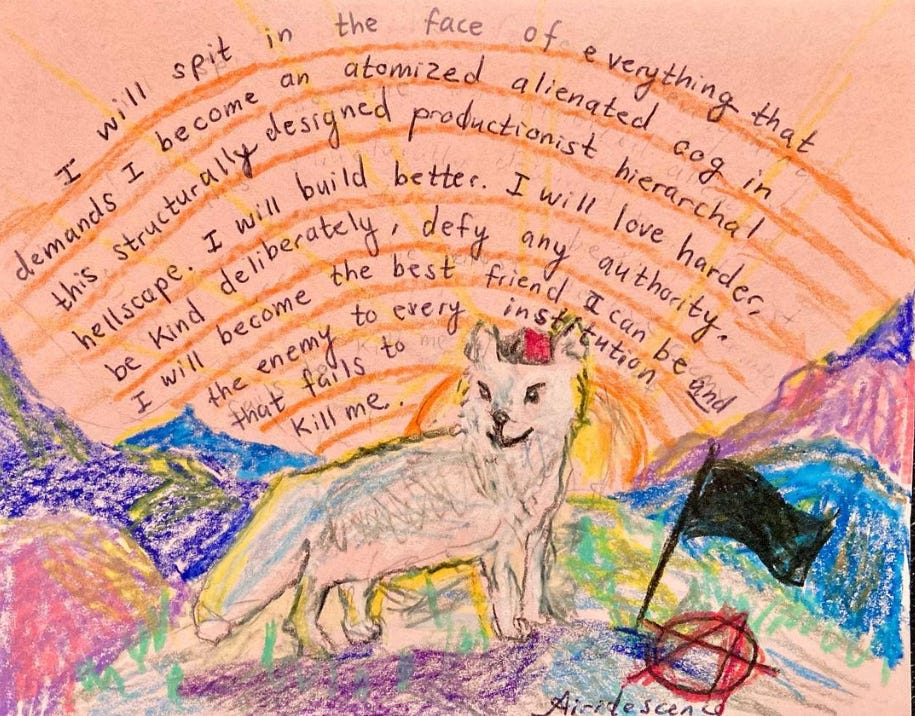 I will spit in the face of everything that
demands I become an atomized alienated cog in
this structurally designed productionist hierarchal
hellscape. I will build better. I will love harder,
be kind deliberately, defy any authority.
I will become the best friend I can be and
the enemy to every institution
that fails to
kill me.
Airidescence